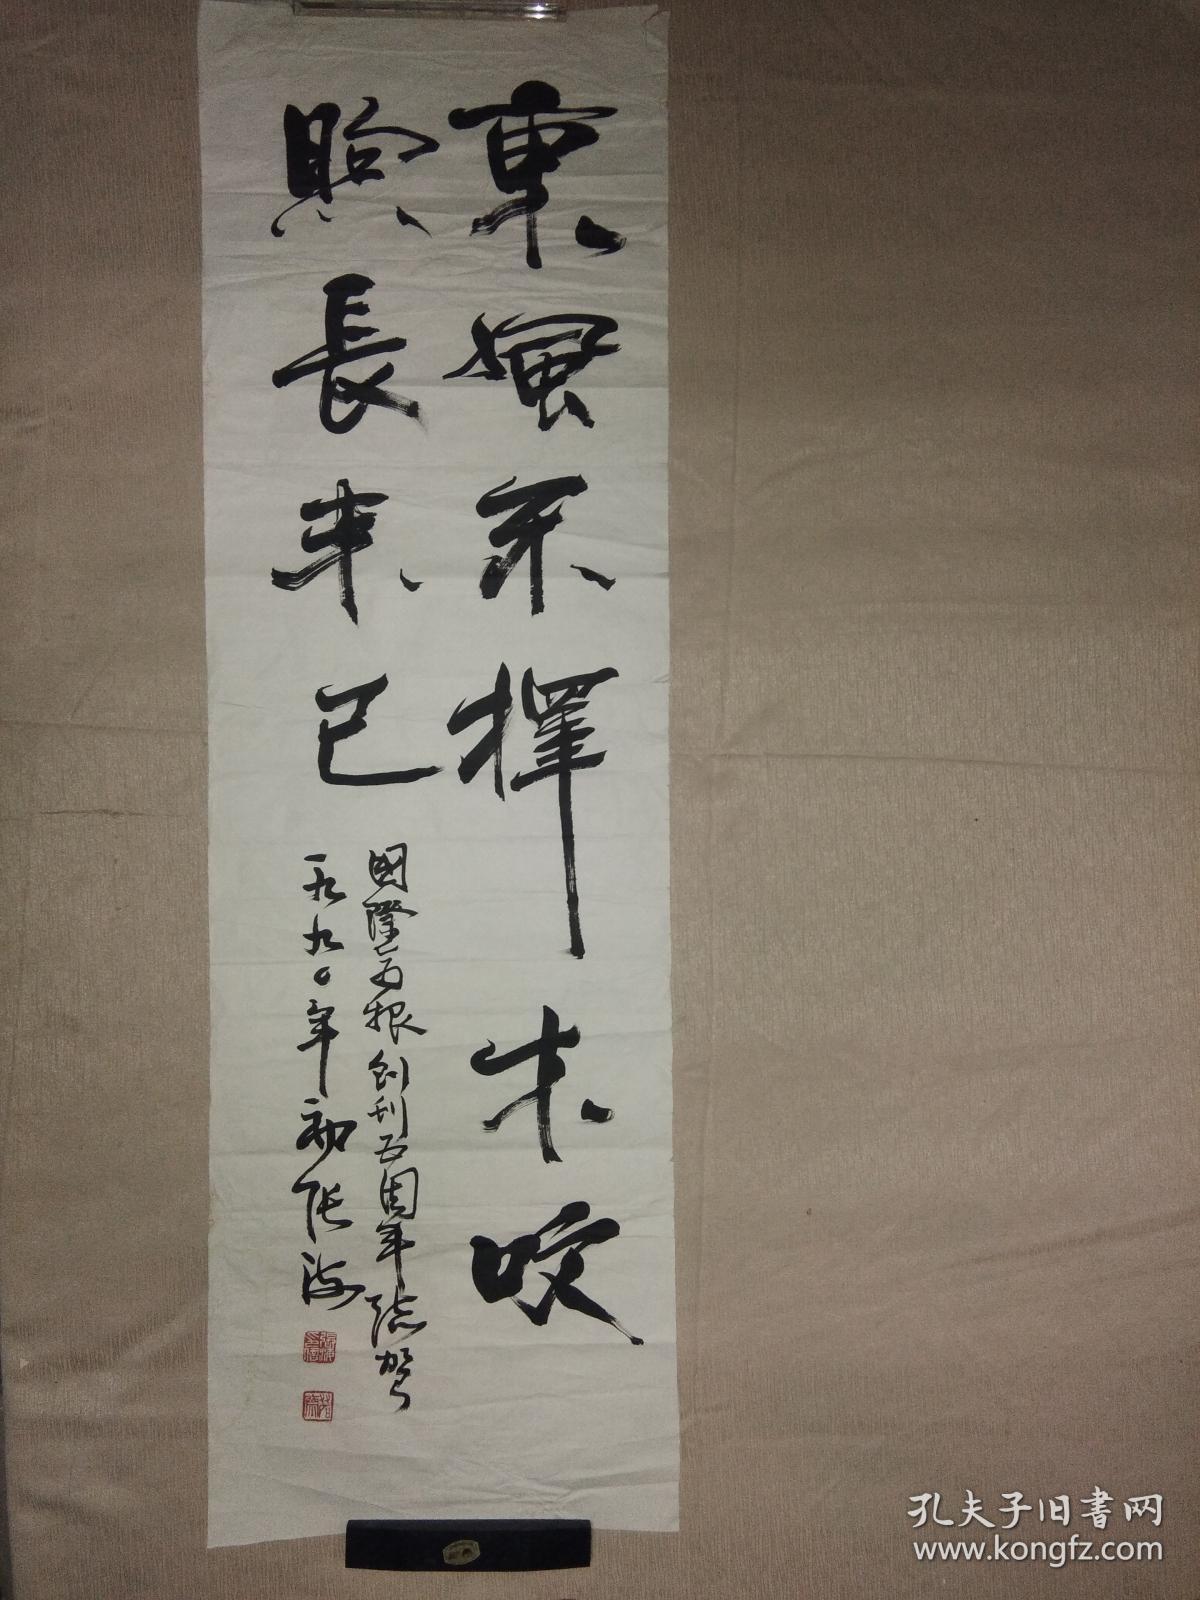 東風不擇木吹
煦長未已
國際商报創刊五周年誌賀
一九九〇年初張海
孔夫子旧書网
www.kongfz.com